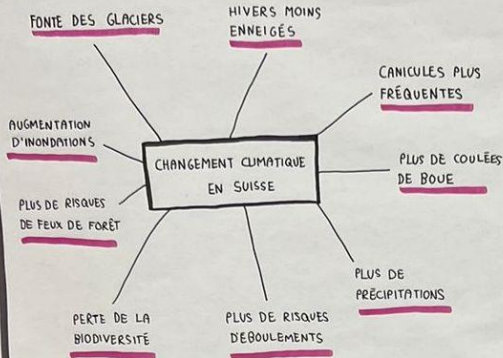 FONTE DES GLACIERS
HIVERS MOINS
ENNEIGÉS
CANICULES PLUS
FRÉQUENTES
AUGMENTATION
D'INONDATIONS
CHANGEMENT CLIMATIQUE
EN SUISSE
PLUS DE COULÉES
DE BOUE
PLUS DE RISQUES
DE FEUX DE FORÊT
PLUS DE
PRÉCIPITATIONS
PERTE DE LA
BIODIVERSITÉ
PLUS DE RISQUES
D'ÉBOULEMENTS